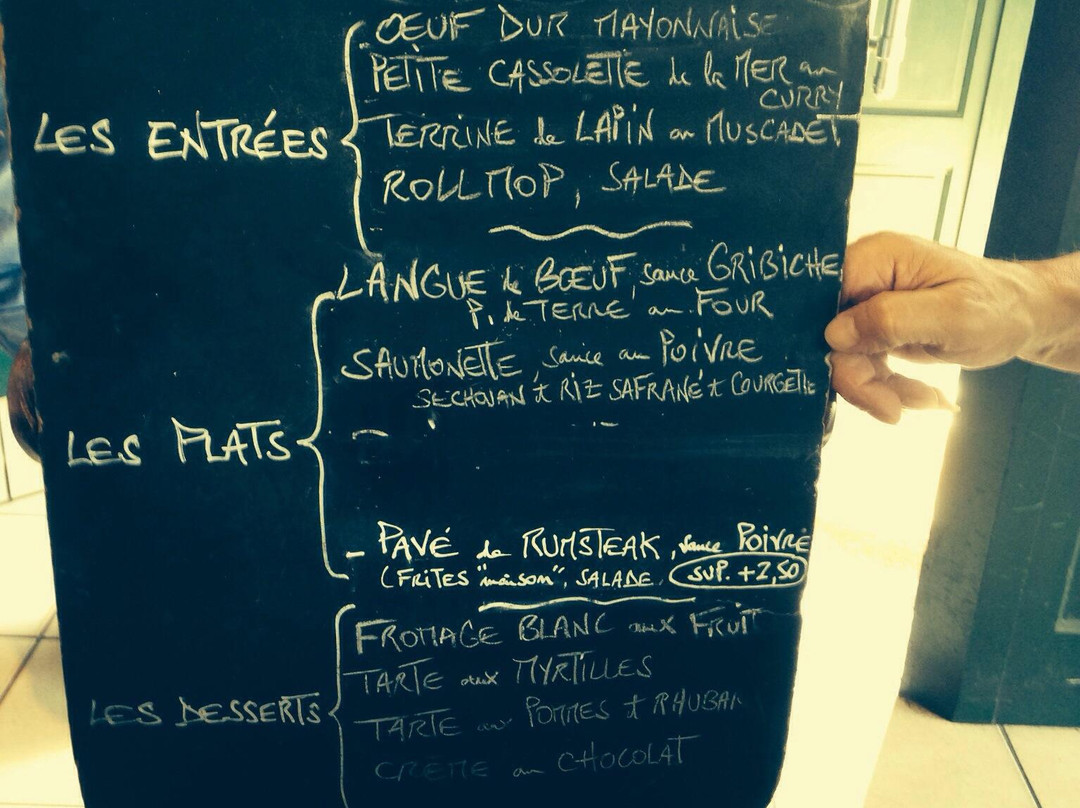 OEUF DUR MAYONNAISE
PETITE CASSOLETTE de la MER au
CURRY
LES ENTRÉES
TERRINE de LAPIN au MUSCADET
ROLLMOP, SALADE
LANGUE de BŒUF, sauce GRIBICHE,
P. de TERRE au FOUR
SAUMONETTE, sauce au POIVRE
SECHOUAN + RIZ SAFRANÉ + COURGETTE
LES PLATS
- PAVÉ de RUMSTEAK, sauce POIVRE
(FRITES "maison", SALADE SUP. +2,50
FROMAGE BLANC aux FRUIT
TARTE aux MYRTILLES
LES DESSERTS
TARTE aux POMMES + RHUBAR
CRÈME au CHOCOLAT